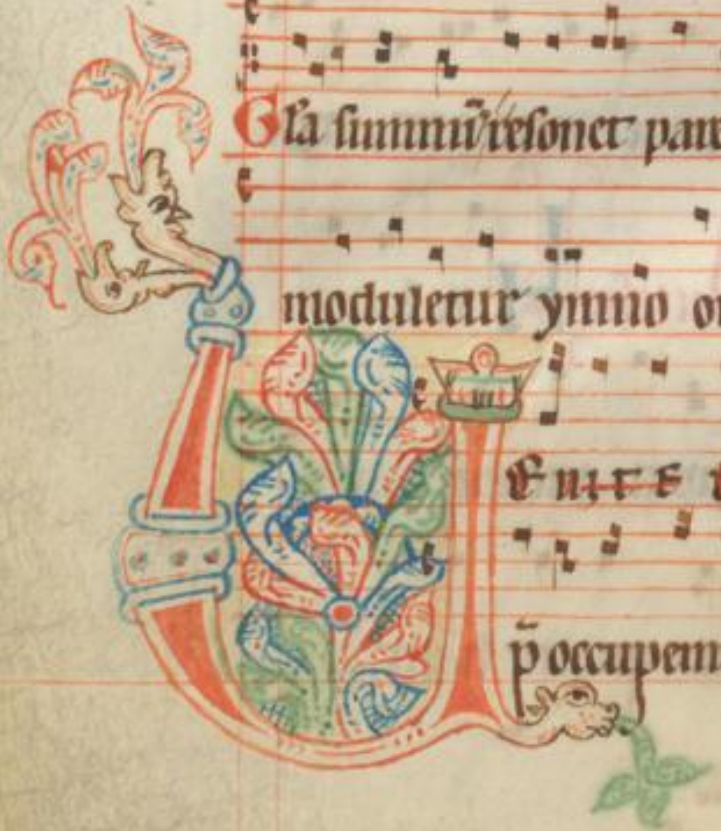 Gl'a summu resonet par
moduletur ymno o
VENITE
p occupem